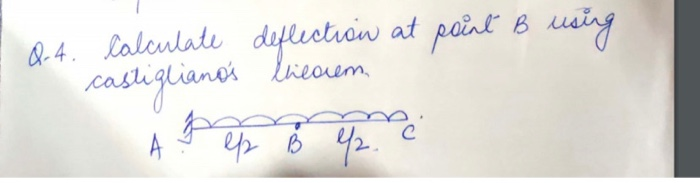 Q.4. Calculate deflection at point B using
castigliano's theorem.
A l/2 B l/2. C